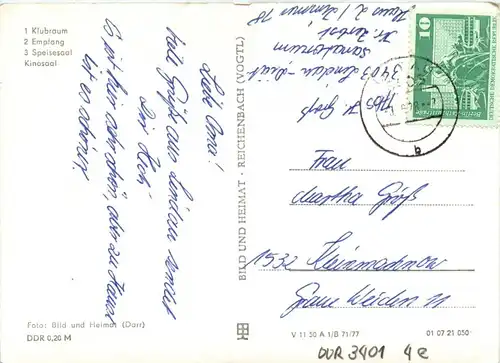 1 Klubraum
2 Empfang
3 Speisesaal
Kinosaal
Liebe Oma!
viele Grüße aus Lindau sendet
Dir Heh
Es ist hier sehr schön, aber zu Hause
ist es schöner.
Foto: Bild und Heimat (Darr)
DDR 0,20 M
BILD UND HEIMAT · REICHENBACH (VOGTL)
H. Groß
Sanatorium
3401 Lindau
Haus 2 / Zimmer 18
10
DEUTSCHE DEMOKRATISCHE REPUBLIK
Frau
Martha Groß
1532 Kleinmachnow
Graue Weiden 11
V 11 50 A 1/B 71/77
01 07 21 050
DDR 3401 4e